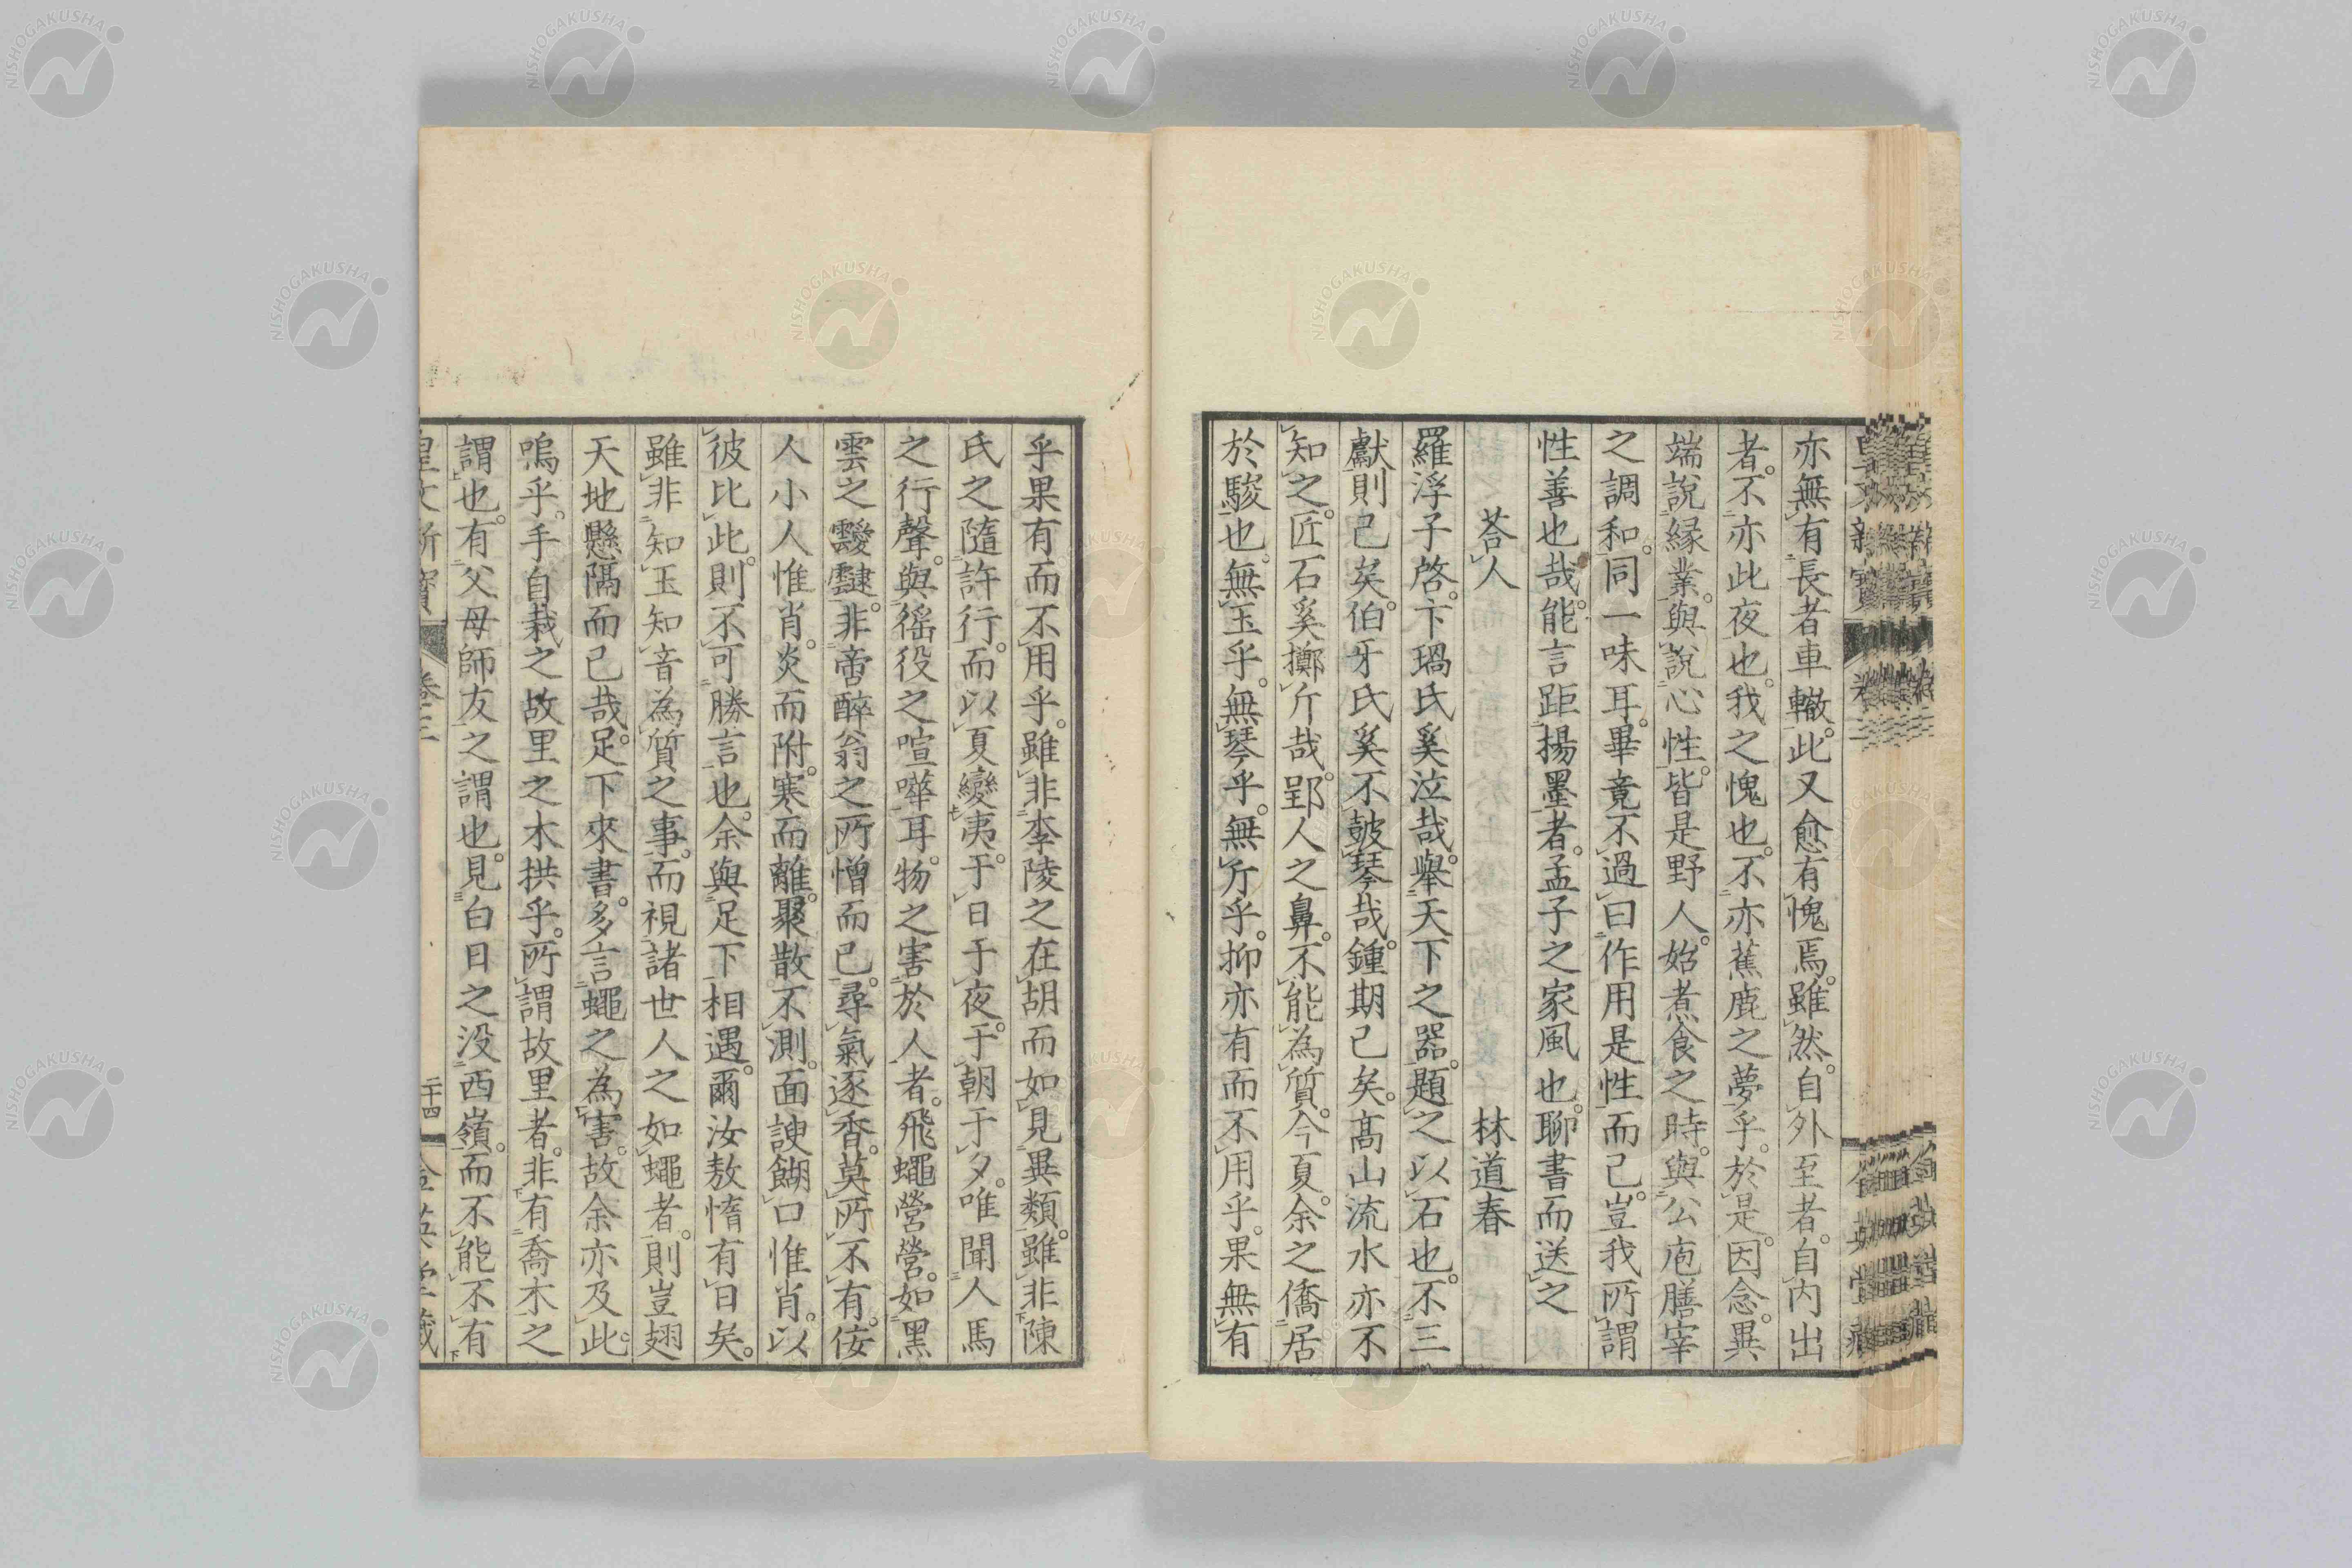 亦無有長者車轍。此又愈有愧焉。雖然。自外至者。自内出
者。不亦此夜也。我之愧也。不亦蕉鹿之夢乎。於是。因念。異
端說緣業。與說心性。皆是野人。始煮食之時。與公庖膳宰
之調和。同一味耳。畢竟不過曰作用是性而已。豈我所謂
性善也哉。能言距揚墨者。孟子之家風也。聊書而送之
荅人 林道春
羅浮子啓。卞瑒氏奚泣哉。舉天下之器。題之以石也。不三
獻則已矣。伯牙氏奚不皷琴哉。鍾期已矣。髙山流水亦不
知之。匠石奚擲斤哉。郢人之鼻。不能為質。今夏。余之僑居
於駿也。無玉乎。無琴乎。無斤乎。抑亦有而不用乎。果無有
乎果有而不用乎。雖非李陵之在胡而如見異類。雖非陳
氏之隨許行。而以夏變夷。于日于夜。于朝于夕。唯聞人馬
之行聲。與徭役之喧嘩耳。物之害於人者。飛蠅營營。如黑
雲之靉靆。非啻醉翁之所憎而已。尋氣逐香。莫所不有。侫
人小人惟肖。炎而附。寒而離。聚散不測。面諛餬口惟肖。以
彼比此。則不可勝言也。余與足下相遇。爾汝敖惰有日矣。
雖非知玉知音為質之事。而視諸世人之如蠅者。則豈翅
天地懸隔而已哉。足下來書。多言蠅之為害。故余亦及此
嗚乎。手自栽之故里之木拱乎。所謂故里者。非有喬木之
謂也。有父母師友之謂也。見白日之没西嶺。而不能不有
皇文新寶 卷三 二十四
NISHOGAKUSHA